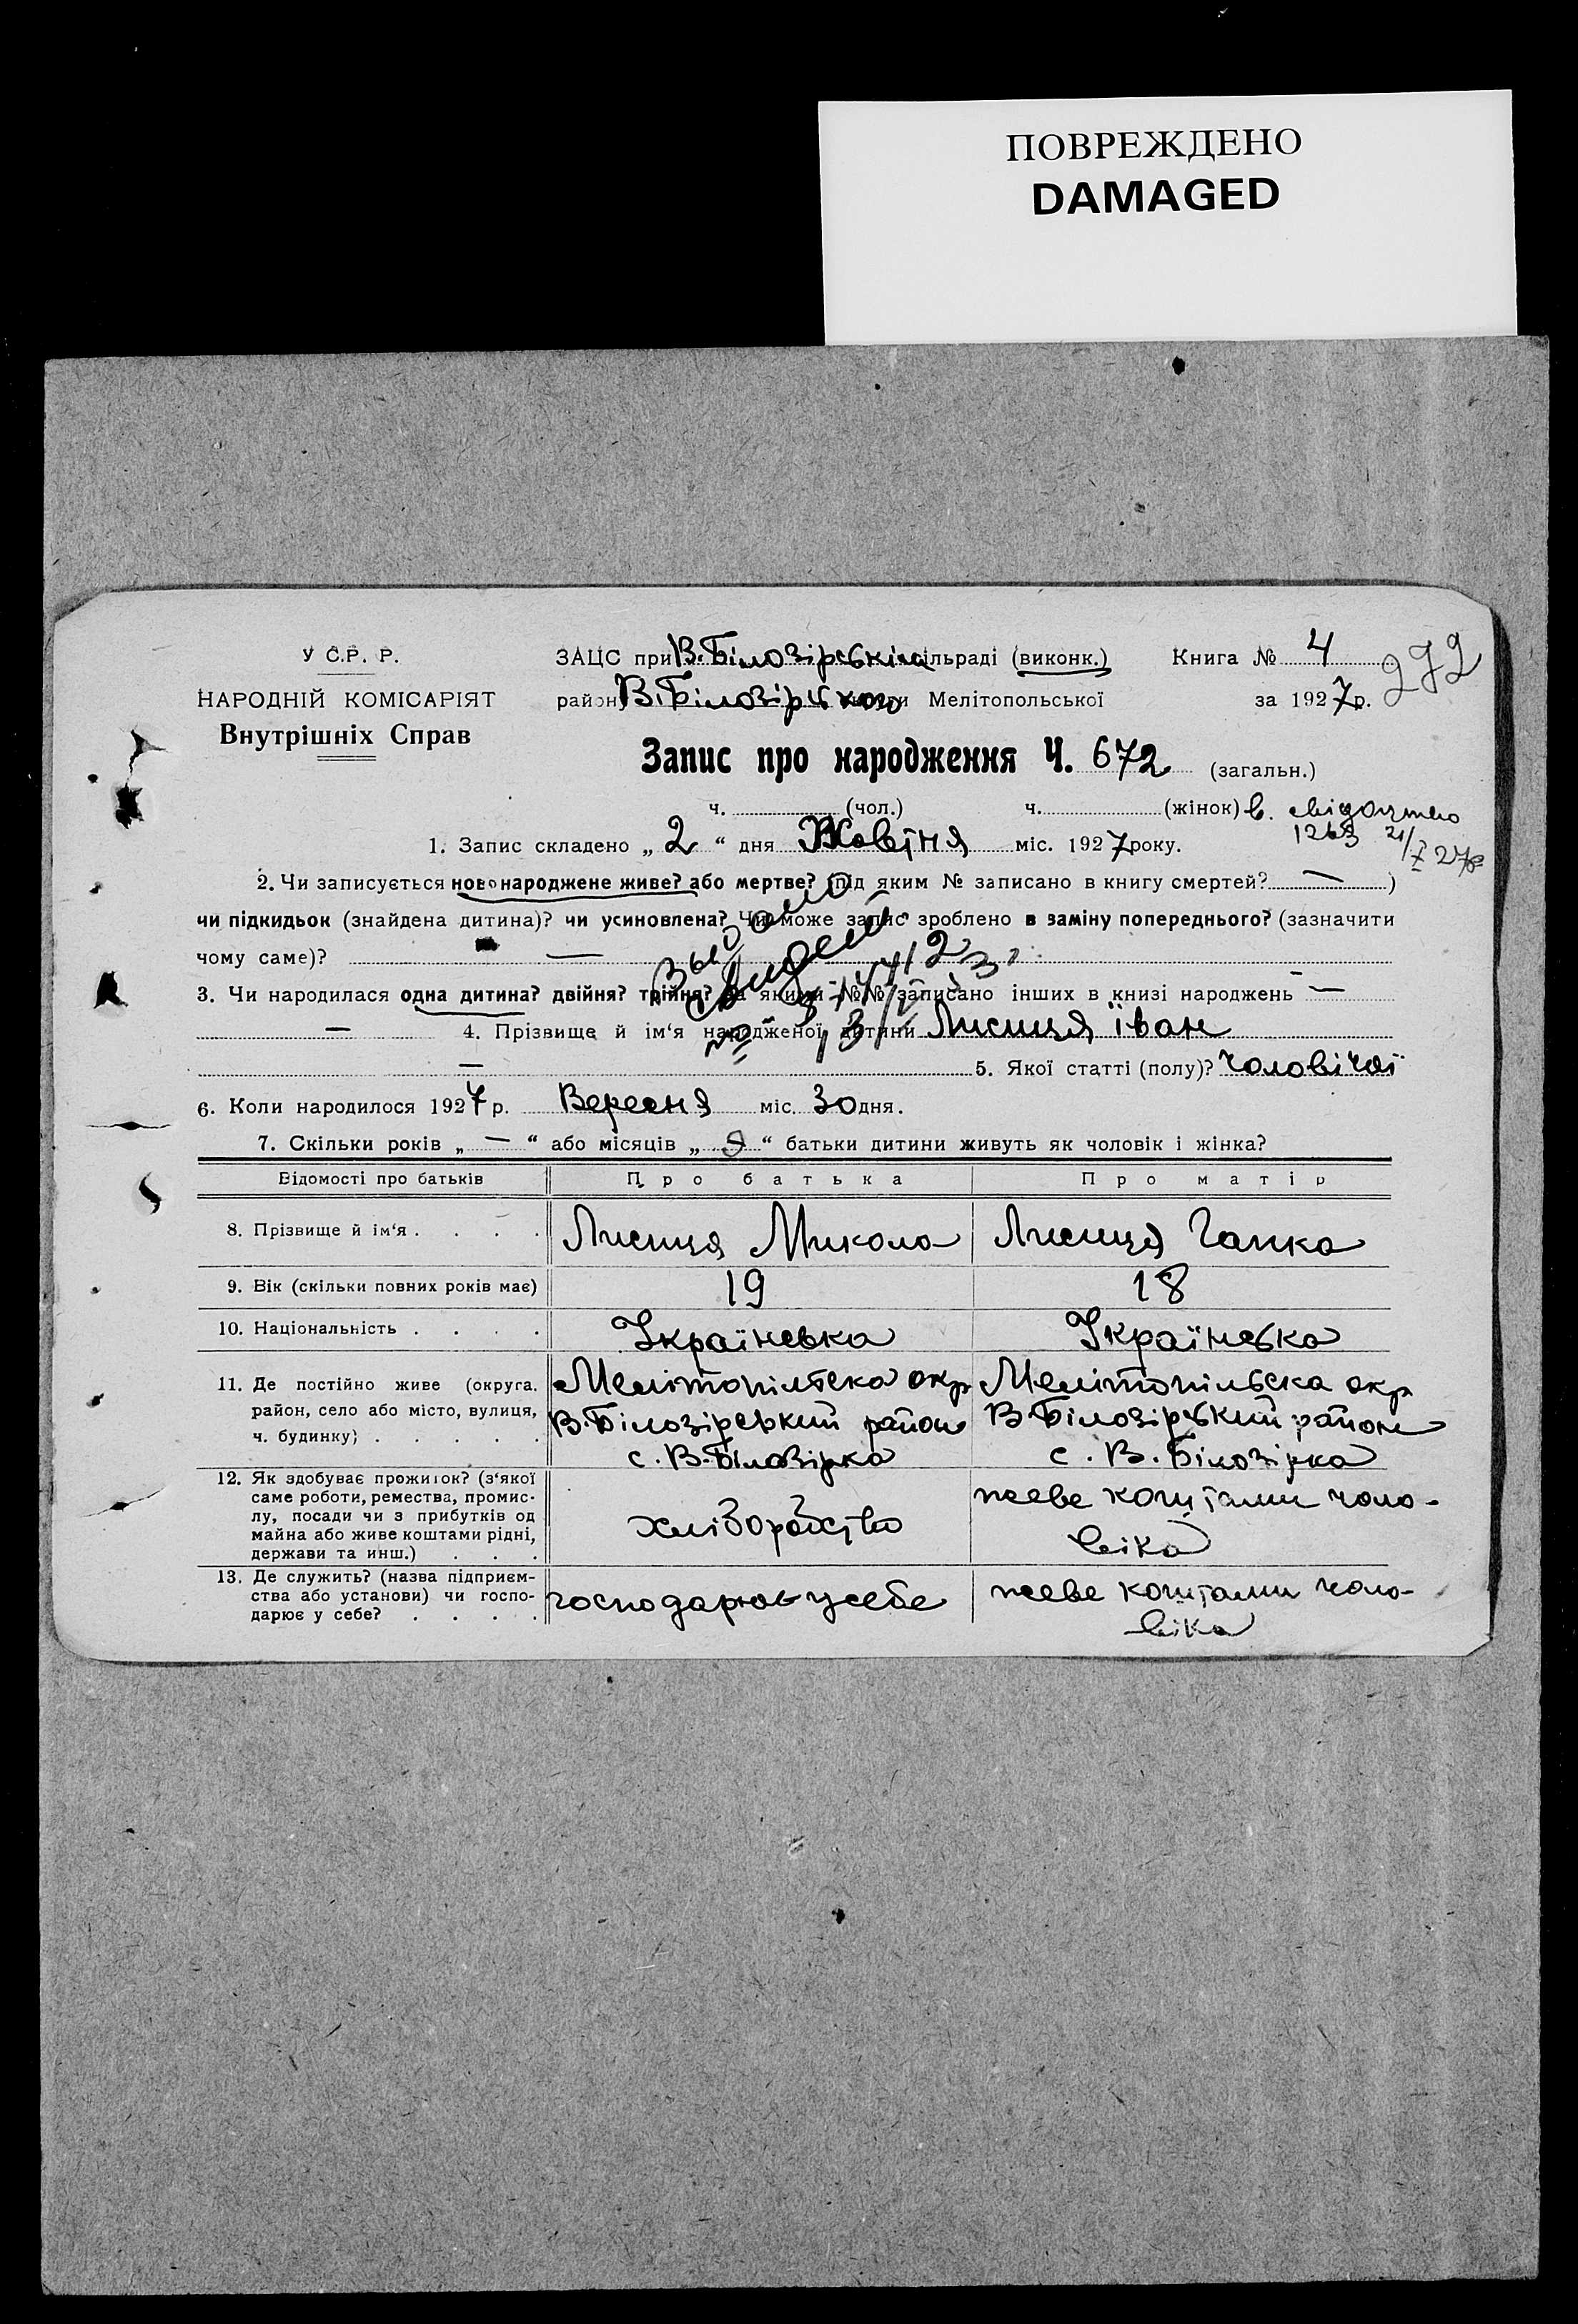 ПОВРЕЖДЕНО
DAMAGED
У С.Р. Р.
НАРОДНІЙ КОМІСАРІЯТ
Внутрішніх Справ
ЗАЦС при В.Білозірськім сільраді (виконк.)
району В.Білозірського округи Мелітопольської
Книга № 4
за 1927р.
272
Запис про народження Ч. 672 (загальн.)
ч. (чол.) ч. (жінок) в. свідоцтво
1. Запис складено „ 2 “ дня Жовтня міс. 1927 року.
21/X 27р
2. Чи записується новонароджене живе? або мертве? (під яким № записано в книгу смертей? — )
чи підкидьок (знайдена дитина)? чи усиновлена? Чи може запис зроблено в заміну попереднього? (зазначити
чому саме)? —
Выдано
свидет.
3. Чи народилася одна дитина? двійня? трійня? за якими №№ записано інших в книзі народжень —
— 4. Прізвище й ім'я народженої дитини Лисиця Їван
— 5. Якої статті (полу)? чоловічої
6. Коли народилося 1927 р. Вересня міс. 30 дня.
7. Скільки років „ — “ або місяців „ 9 “ батьки дитини живуть як чоловік і жінка?
Відомості про батьків Про батька Про матір
8. Прізвище й ім'я . . . . Лисиця Микола Лисиця Гапка
9. Вік (скільки повних років має) 19 18
10. Національність . . . . Українська Українська
11. Де постійно живе (округа, район, село або місто, вулиця, ч. будинку) . . . . .
Мелітопільська окр
В.Білозірський район
с. В.Білозірка
Мелітопільська окр
В Білозірський район
с. В. Білозірка
12. Як здобуває прожиток? (з'якої
саме роботи, ремества, промис-
лу, посади чи з прибутків од
майна або живе коштами рідні,
держави та инш.) . . .
хліборобство
живе коштами чоло-
віка
13. Де служить? (назва підприєм-
ства або установи) чи госпо-
дарює у себе? . . . .
господарює у себе
живе коштами чоло-
віка